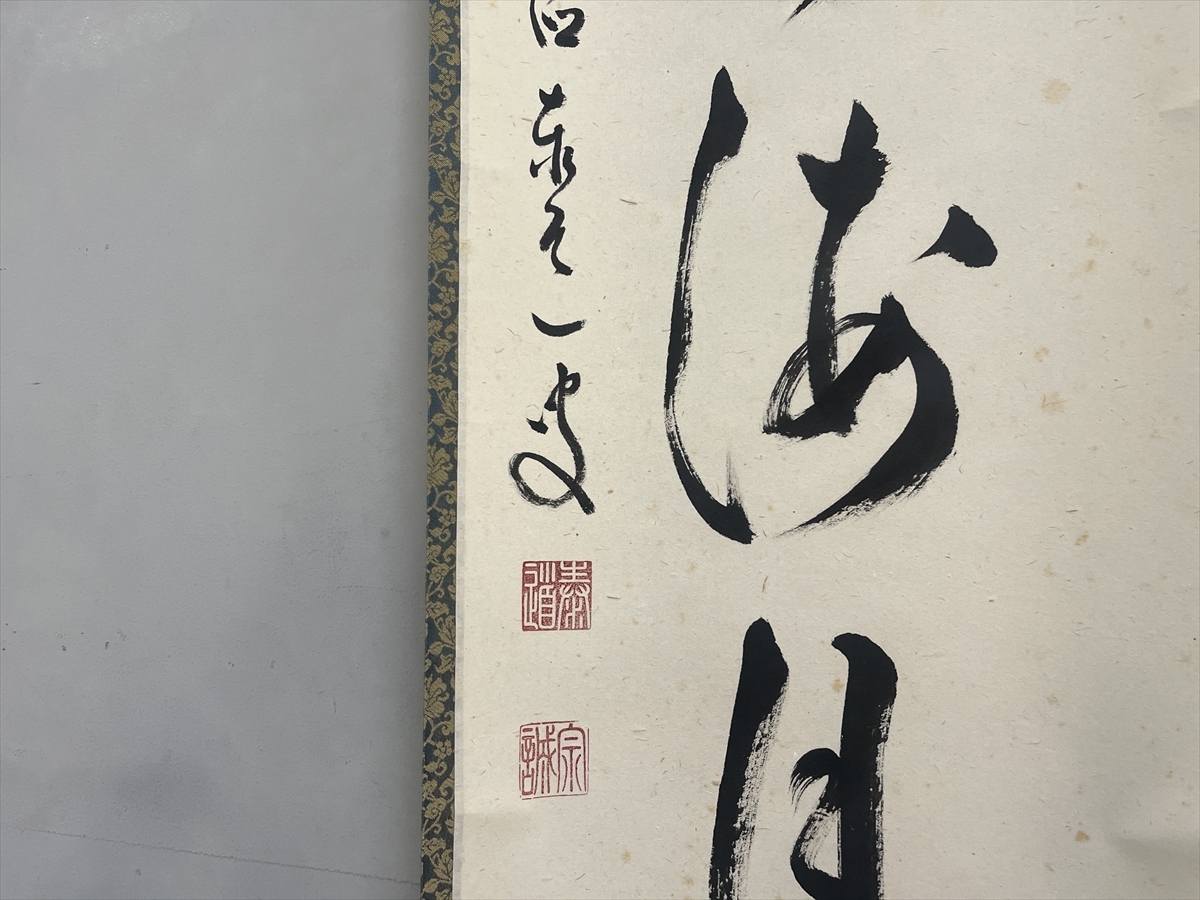 海月
泰道叟
泰道
宗誠